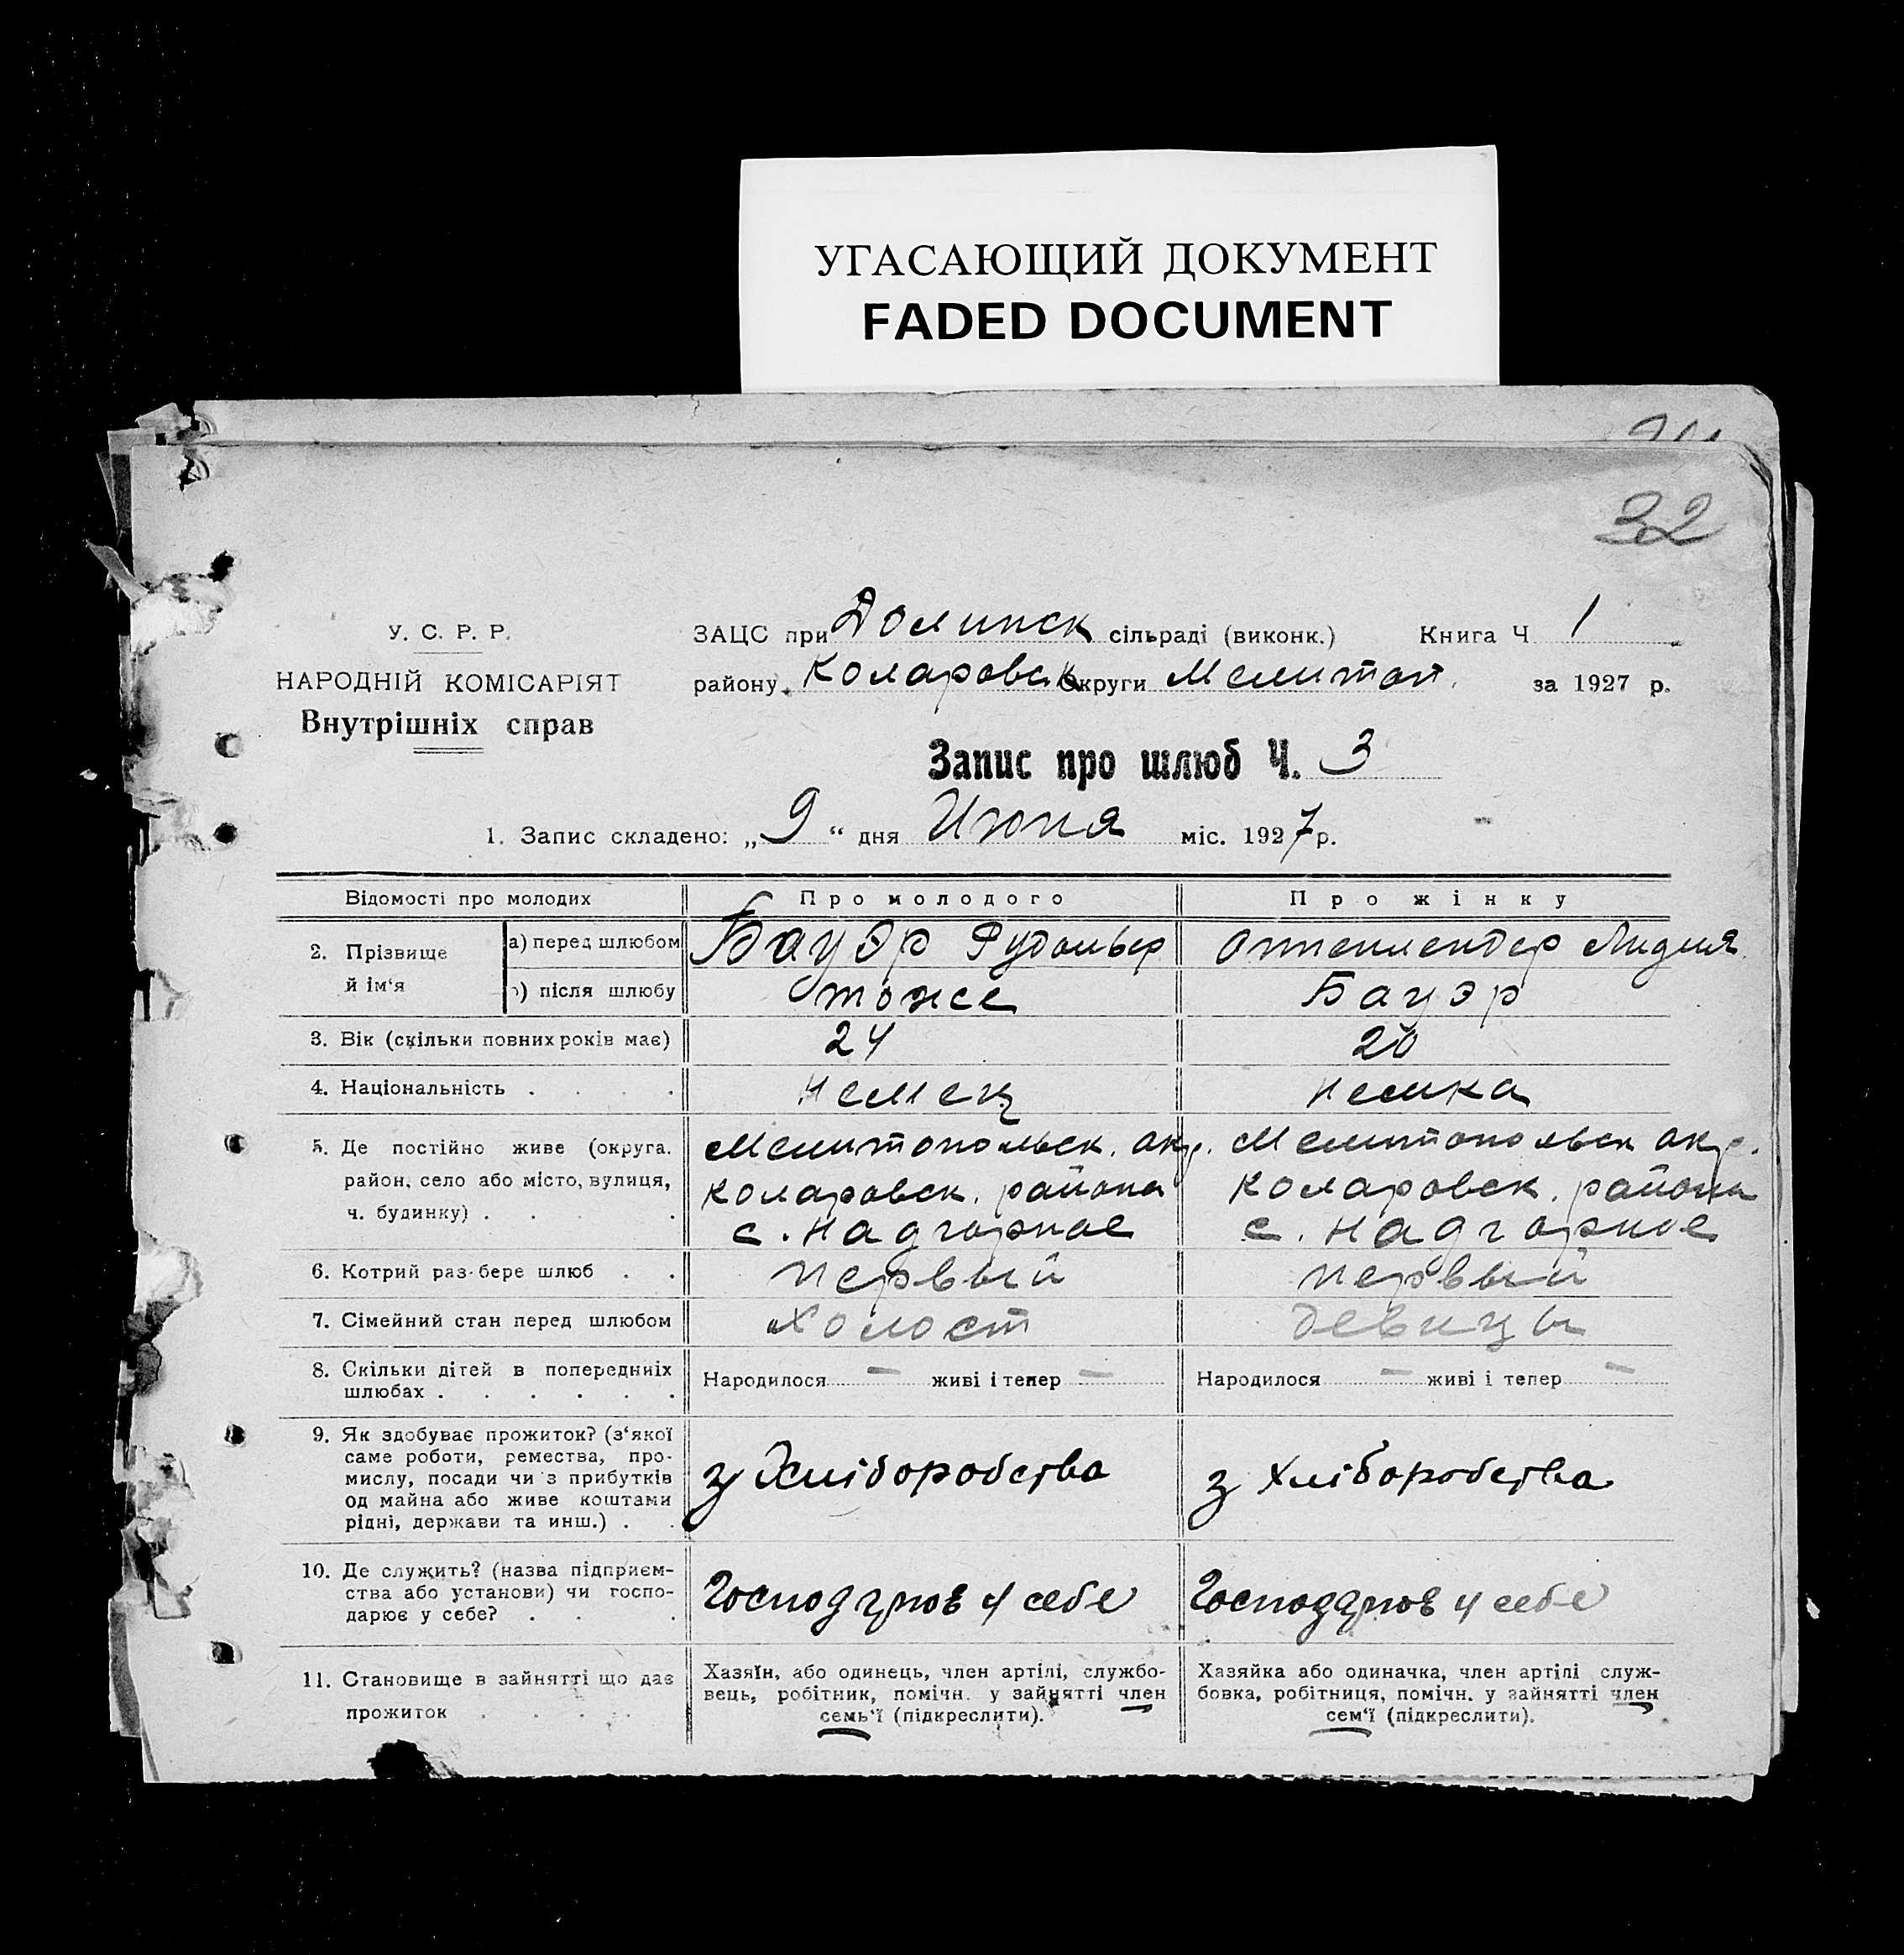 УГАСАЮЩИЙ ДОКУМЕНТ
FADED DOCUMENT
32
У. С. Р. Р.
НАРОДНІЙ КОМІСАРІЯТ
Внутрішніх справ
ЗАЦС при Долинск сільраді (виконк.) Книга Ч 1
району Коларовск Округи Мелитоп. за 1927 р.
Запис про шлюб Ч. 3
1. Запис складено: „9“ дня Июня міс. 1927 р.
Відомості про молодих Про молодого Про жінку
2. Прізвище й ім‘я а) перед шлюбом Бауэр Рудольф Оттенлендер Лидия
) після шлюбу тоже Бауэр
3. Вік (скільки повних років має) 24 20
4. Національність . . . . Немец Немка
5. Де постійно живе (округа. Мелитопольск. окр. Мелитопольск окр.
район, село або місто, вулиця, Коларовск. района Коларовск. района
ч. будинку) . . . . с. Надгорное с. Надгорное
6. Котрий раз бере шлюб . . первый первый
7. Сімейний стан перед шлюбом холост девица
8. Скільки дітей в попередниіх Народилося — живі і тепер — Народилося — живі і тепер —
шлюбах . . . . . .
9. Як здобуває прожиток? (з‘якої
саме роботи, ремества, про-
мислу, посади чи з прибутків з Хліборобства з Хліборобства
од майна або живе коштами
рідні, держави та инш.) . .
10. Де служить? (назва підприєм-
ства або установи) чи госпо- Господарює у себе Господарює у себе
дарює у себе? . . .
11. Становище в зайнятті що дає Хазяїн, або одинець, член артілі, службо- Хазяйка або одиначка, член артілі служ-
прожиток . . . . вець, робітник, помічн. у зайнятті член бовка, робітниця, помічн. у зайнятті член
семь‘ї (підкреслити). сем‘ї (підкреслити).